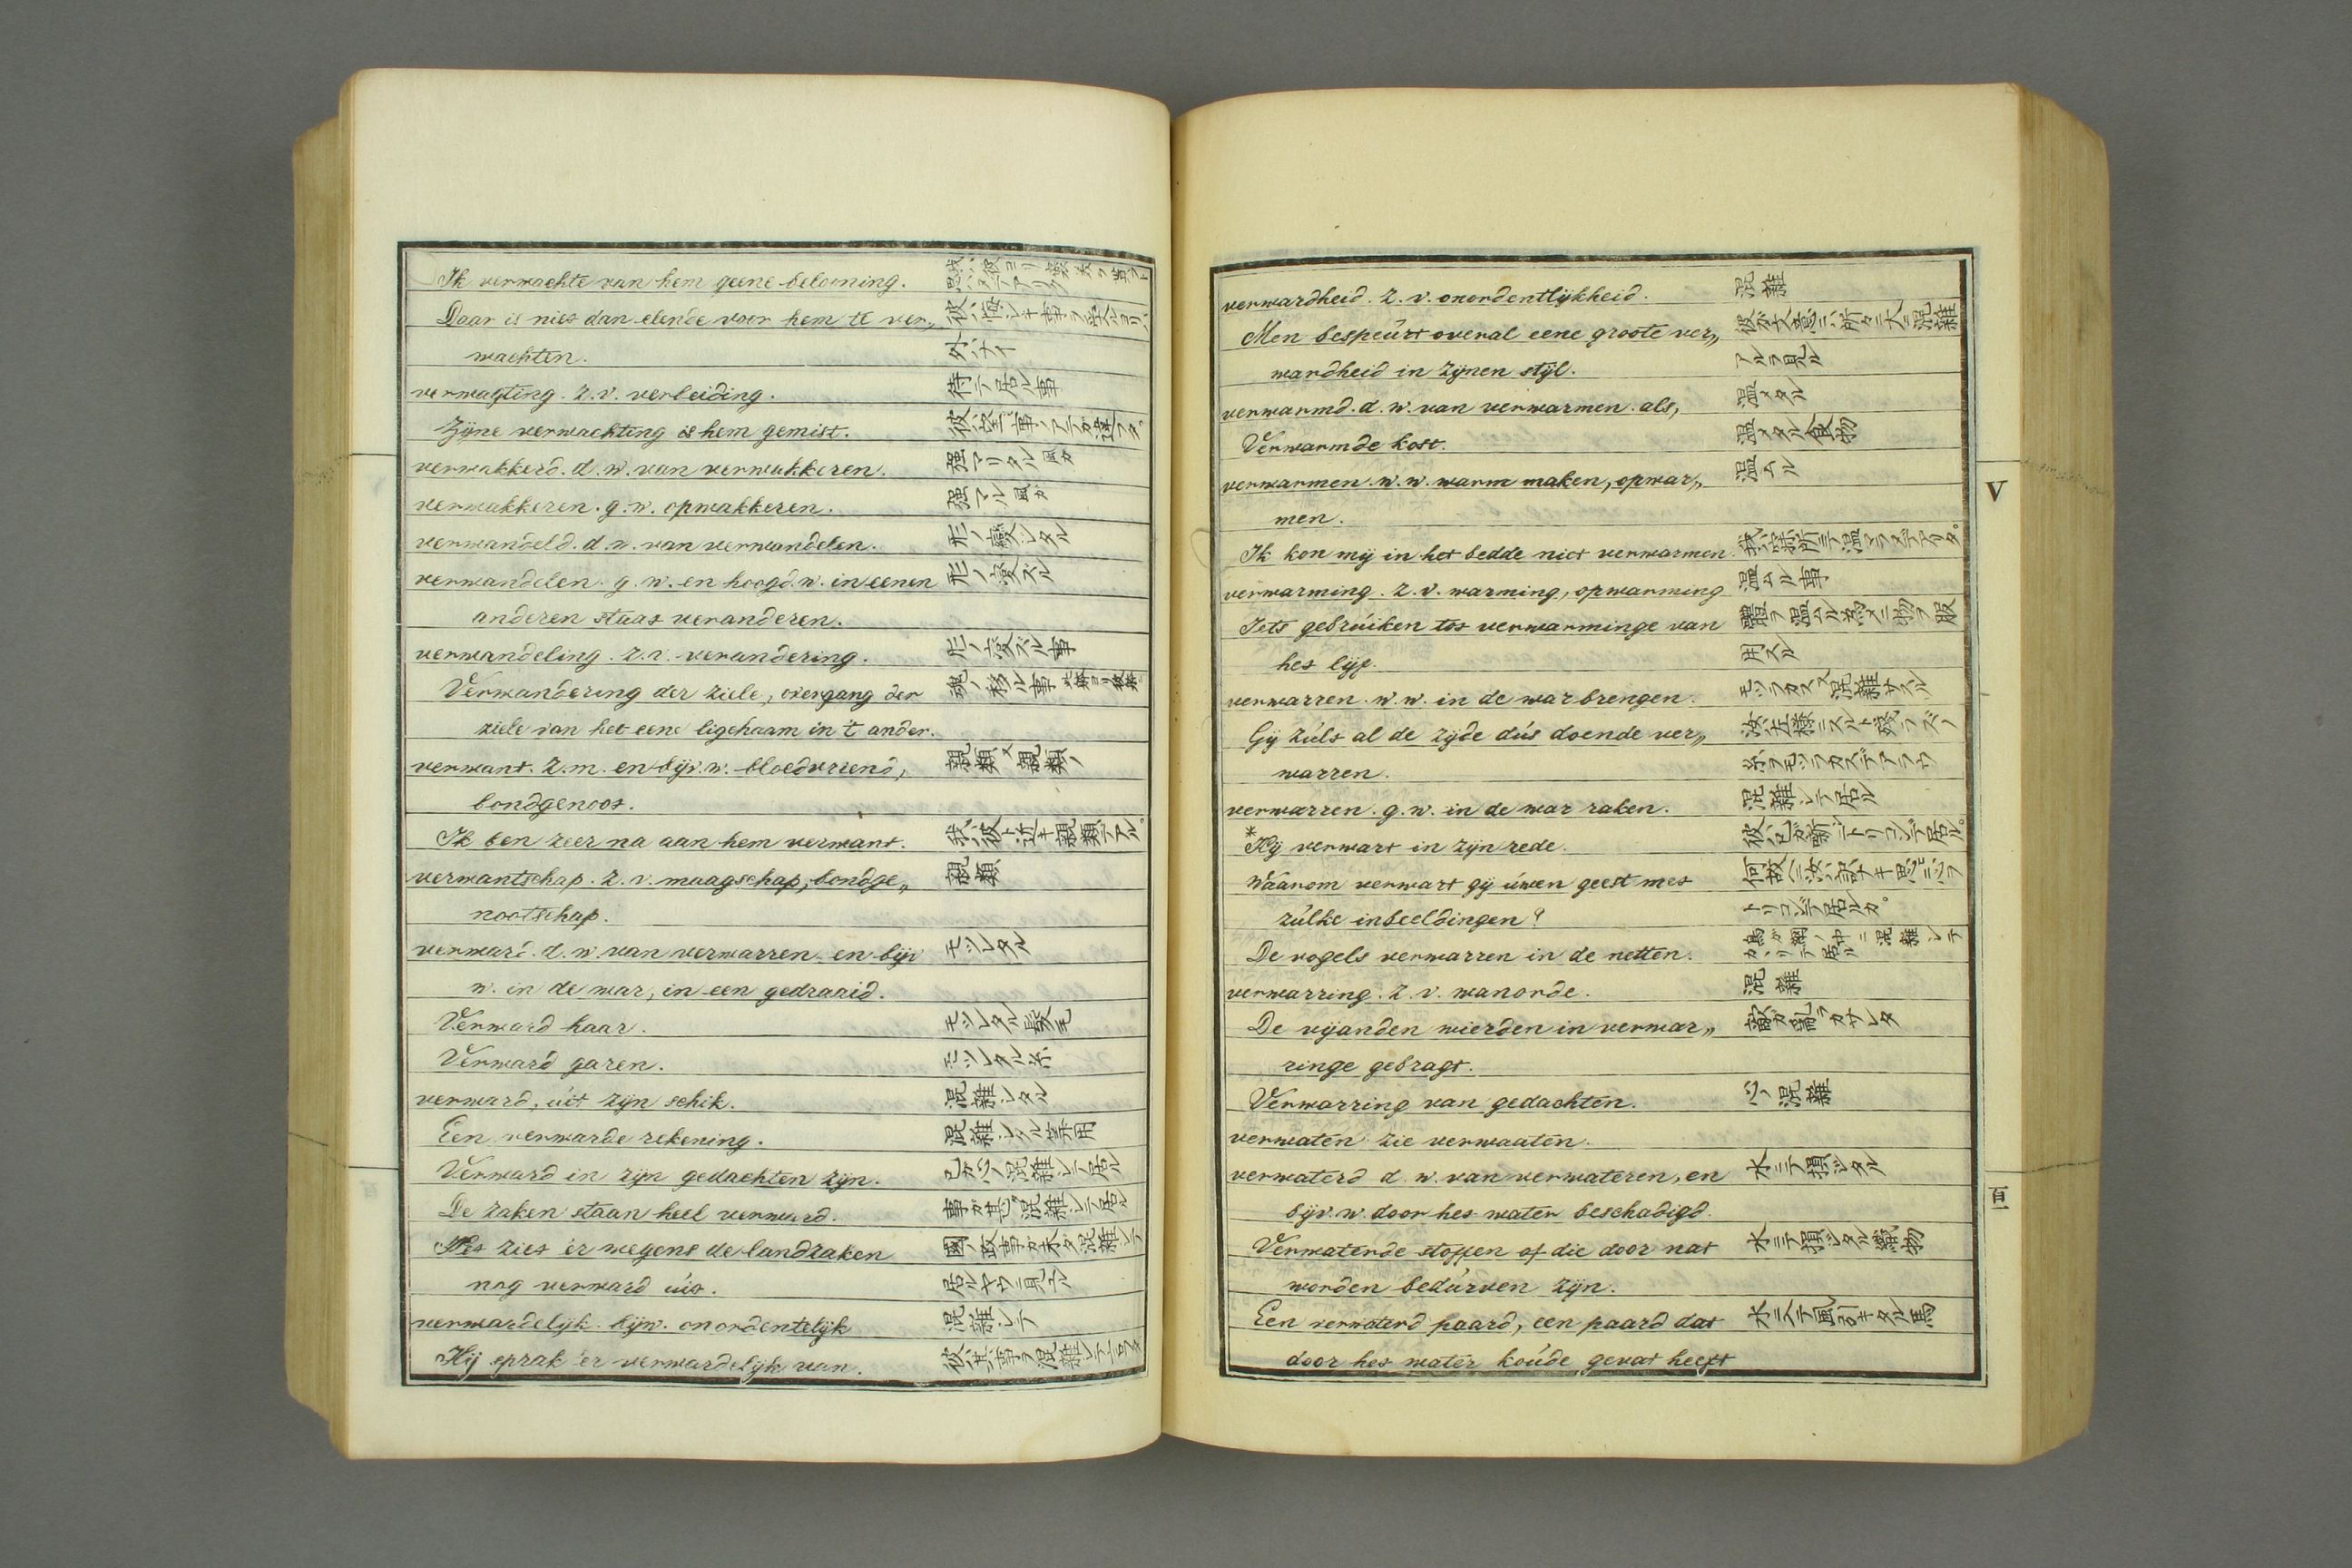 Ik verwachte van hem geene belooning.
Daar is niet dan elende voor hem te ver„ 彼ハ悔シキ事ヲ
wachten. 外ハナイ
verwagting. z.v. verbeiding. 待テ居ル事
Zijne verwachting is hem gemist.
verwakkerd. d.w. van verwakkeren. 强マリタル 風ガ
verwakkeren. g.w. opwakkeren. 强マル 風ガ
verwandeld. d.w. van verwandelen. 形ノ變シタル
verwandelen. g.w. en hoogd.w. in eenen 形ノ変ズル
anderen staat veranderen.
verwandeling. z.v. verandering. 形ノ変ズル事
Verwandering der ziele, overgang der 魂ノ移ル事
ziele van het eene ligehaam in 't ander.
verwant. z.m. en bijv.w. bloedvriend, 親類又親類ノ
bondgenoot.
Ik ben zeer na aan hem verwant. 我ハ彼ト近キ親類デアル。
verwantschap. z.v. maagschap, bondge„ 親類
nootschap.
verward. d.w. van verwarren. en bijv モツレタル
w. in de war, in een gedraaid.
Verward haar. モツレタル髪毛
Verward garen. モツレタル糸
verward, uit zijn schik. 混雜シタル
Een verwarde rekening. 混雜シタル筭用
Verward in zijn gedachten zijn. 己ガ心ノ混雜シテ居ル
De zaken staan heel verward. 事ガ甚ダ混雜シテ居ル
Het ziet er wegens de landzaken 國ノ政事ガ未ダ混雜シテ
nog verward uit. 居ルヤウニ見エル
verwardelijk. bijw. onordentelijk 混雜シテ
Hij sprak 'er verwardelijk van. 彼ハ其事ヲ混雜シテ言タ
verwardheid. z.v. onordentlijkheid. 混雜
Men bespeurt overal eene groote ver„ 彼ガ文意ニハ所々ニ大ニ混雜
wardheid in zijnen stijl. アルヲ見ル
verwarmd. d.w. van verwarmen. als, 温メタル
Verwarmde kost. 温メタル食物
verwarmen. w.w. warm maken, opwar„ 温ムル
men.
Ik kon mij in het bedde niet verwarmen. 我ハ寐所ニテ温マラズデアリタ。
verwarming. z.v. warming, opwarming 温ムル事
Iets gebruiken tot verwarminge van 體ヲ温ムル為メニ物ヲ服
het lijf. 用スル
verwarren. w.w. in de war brengen. モツラカス又混雜サスル
Gij zult al de zijde dus doende ver„ 汝左樣ニスルト残ラズノ
warren. 糸ヲモツラカスデアラウ
verwarren. g.w. in de war raken. 混雜シテ居ル
* Hij verwart in zijn rede.
Waarom verwart gij uwen geest met
zulke inbeeldingen?
De vogels verwarren in de netten. 鳥ガ網ノ中ニ混雜シテカヽツテ居ル
verwarring. z.v. wanorde. 混雜
De vijanden wierden in verwar„ 敵ガ亂ラカサレタ
ringe gebragt.
Verwarring van gedachten. 心ノ混雜
verwaten zie verwaaten.
verwaterd d.w. van verwateren, en 水ニテ損ジタル
bijv.w. door het water beschadigd.
Verwaterde stoffen of die door nat 水ニテ損ジタル織物
worden bedurven zijn.
Een verwaterd paard, een paard dat 水ニテ風引キタル馬
door het water koude gevat heeft
V
百